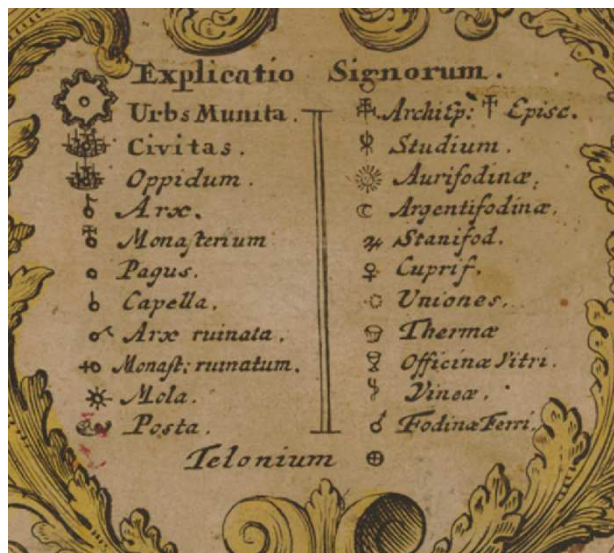 Explicatio Signorum.
Urbs Munita.
Civitas.
Oppidum.
Arx.
Monasterium
Pagus.
Capella.
Arx ruinata.
Monast: ruinatum.
Mola.
Posta.
ArchiEp: Episc.
Studium.
Aurifodinæ.
Argentifodinæ.
Stanifod.
Cuprif.
Uniones.
Thermæ
Officinæ Vitri.
Vineæ.
Fodinæ Ferri.
Telonium